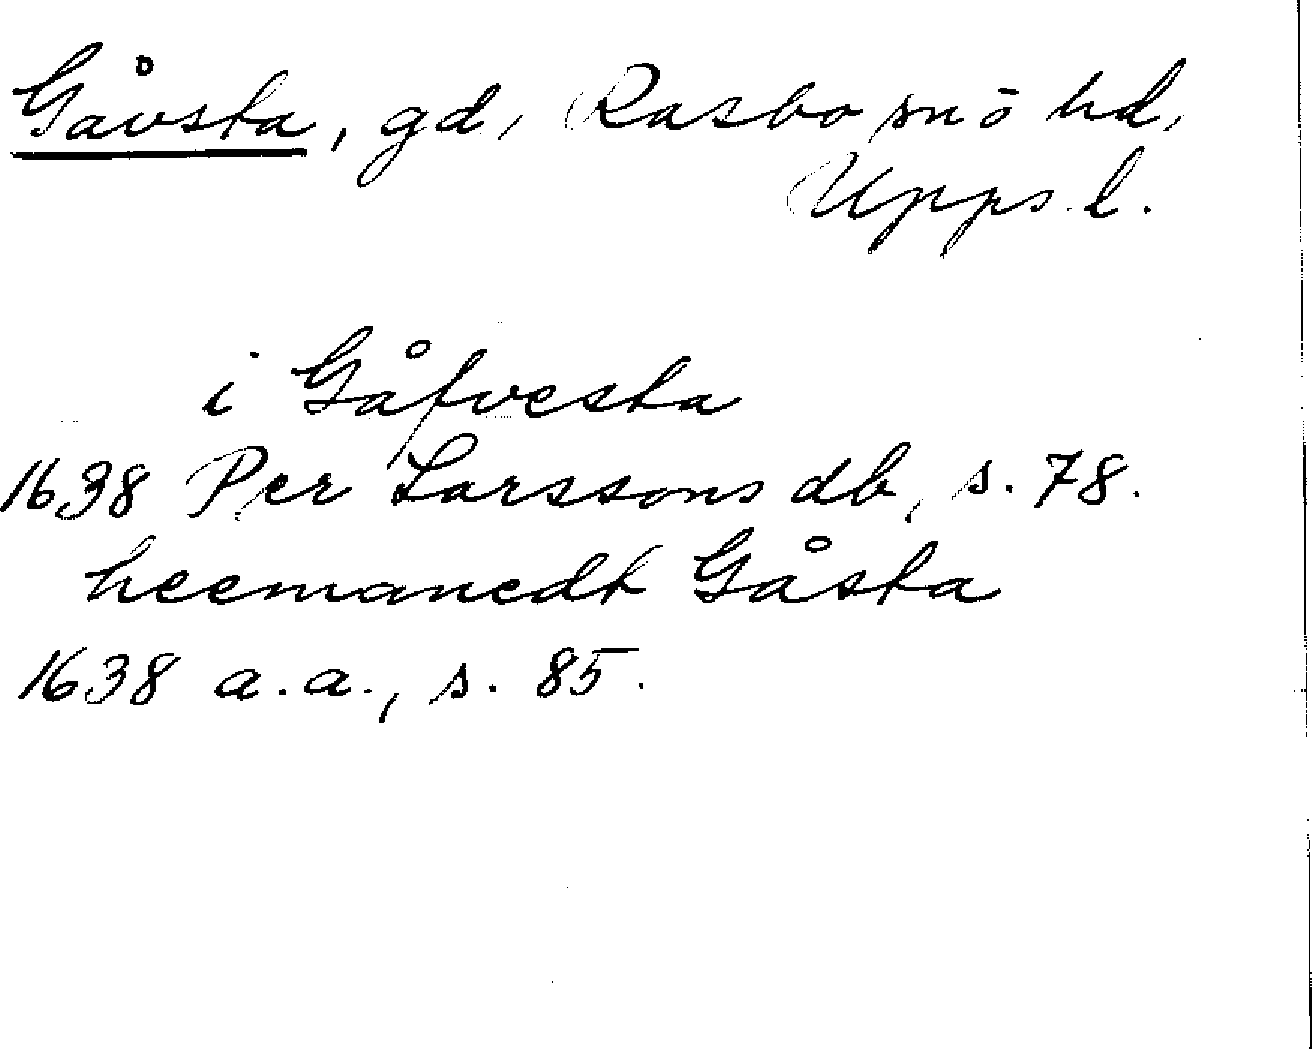 Gåvsta, gd, Rasbo snö hd,
Upps. l.
i Gåfvesta
1638 Per Larssons db, s. 78.
heemanedt Gåsta
1638 a.a., s. 85.